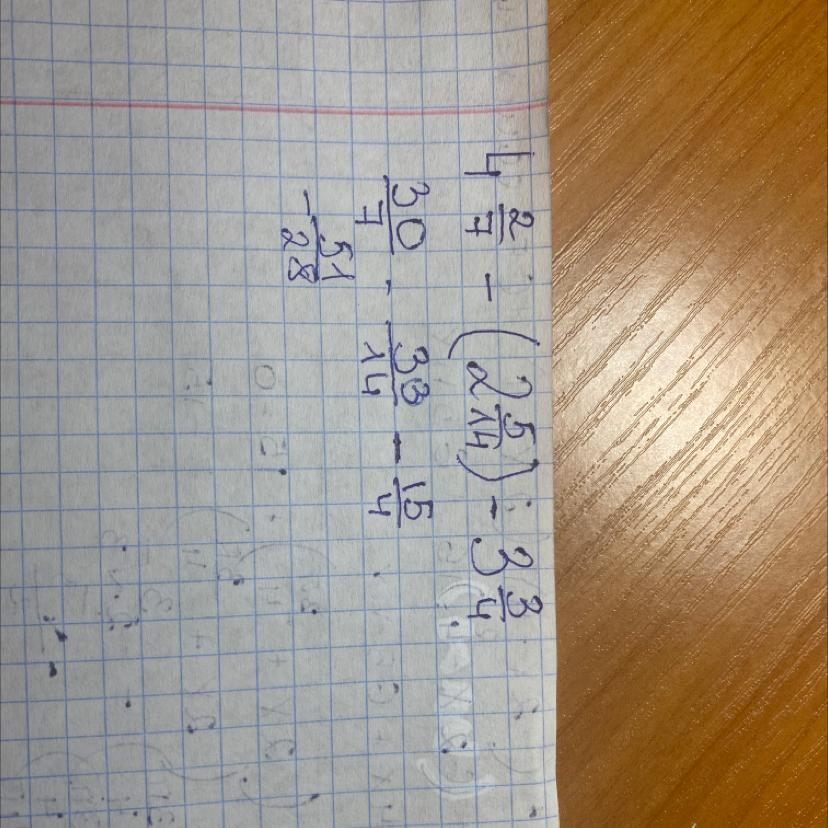 4 2/7 - (2 5/14) - 3 3/4
30/7 - 33/14 - 15/4
- 51/28